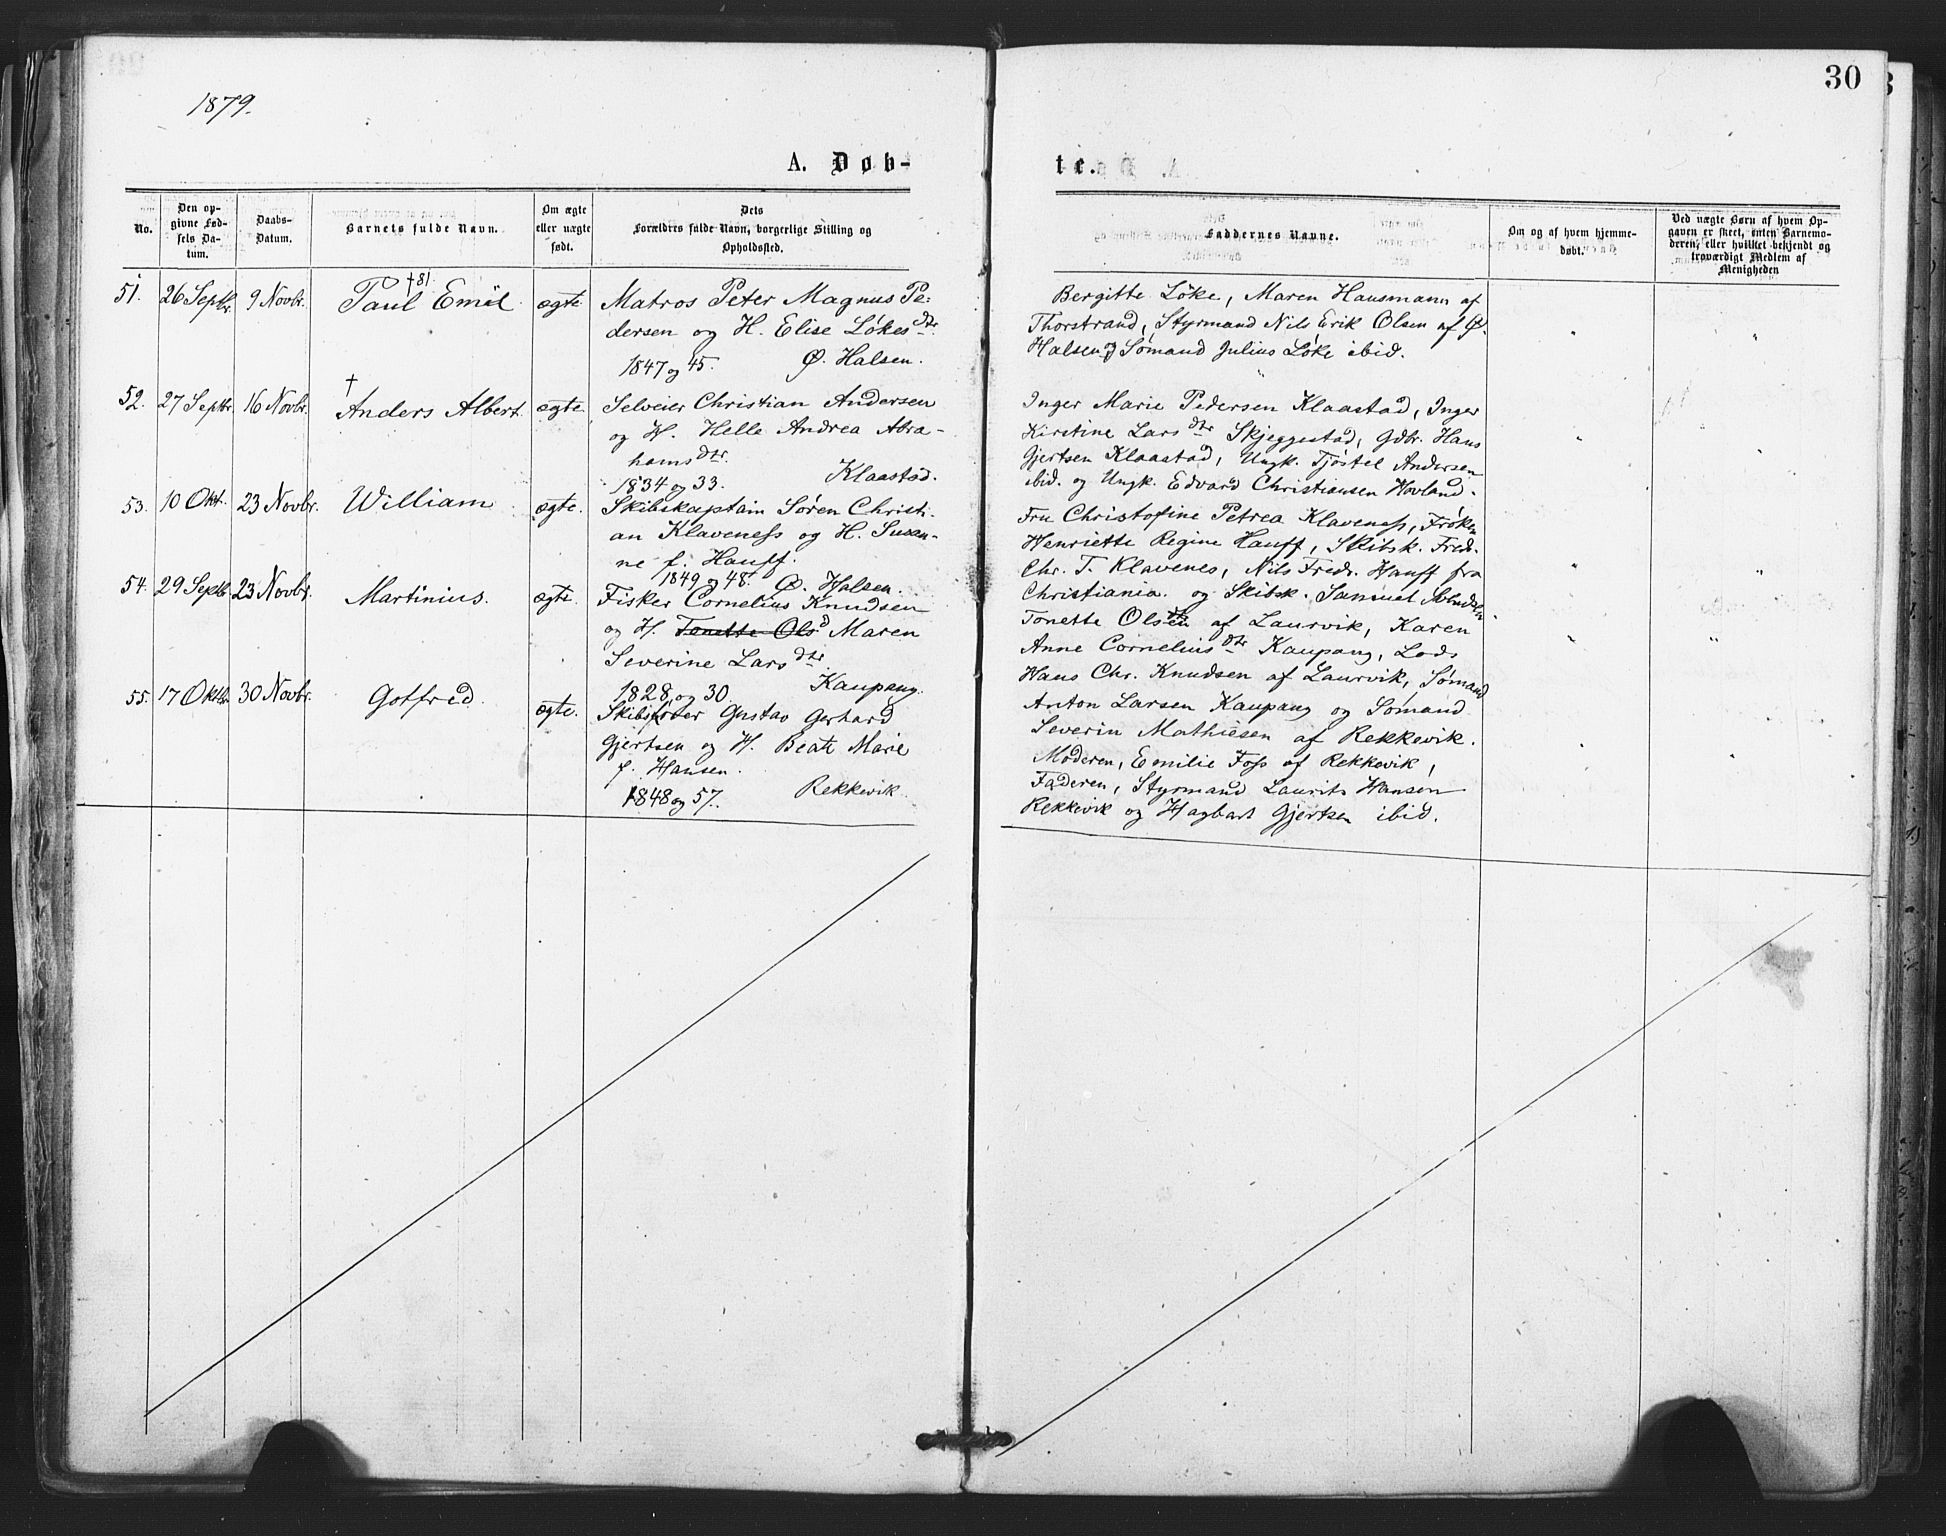 1879.
30
A. Døb-
te.
No.
Den op-
givne Fød-
sels Da-
tum.
Daabs-
Datum.
Barnets fulde Navn.
Om ægte
eller uægte
født.
Dets
Forældres fulde Navn, borgerlige Stilling og
Opholdssted.
Faddernes Navne.
Om og af hvem hjemme-
døbt.
Ved uægte Børn af hvem Op-
gaven er skeet, enten Barnemo-
deren, eller hvilket bekjendt og
troværdigt Medlem af
Menigheden
51. 26 Septbr. 9 Novbr. Paul Emil †81. ægte
Matros Peter Magnus Pe-
dersen og H. Elise Løkesdtr.
1847 og 45. Ø. Halsen.
Bergitte Løke, Maren Hausmann af
Thorstrand, Styrmand Nils Erik Olsen af Ø.
Halsen og Sømand Julius Løke ibid.
52. 27 Septbr. 16 Novbr. † Anders Albert ægte
Selveier Christian Andersen
og H. Helle Andrea Abra-
hamsdtr.
1834 og 33. Klaastad.
Inger Marie Pedersen Klaastad, Inger
Kirstine Larsdtr Skjeggestad, Gdbr. Hans
Gjertsen Klaastad, Ungk. Tjøstel Andersen
ibid. og Ungk. Edvard Christiansen Hovland.
53. 10 Okt. 23 Novbr. William ægte.
Skibskaptain Søren Christi-
an Klaveness og H. Susan-
ne f. Hauff.
1849 og 48. Ø. Halsen.
Fru Christofine Petrea Klaveness, Frøken
Henriette Regine Hauff, Skibsk. Fredr.
Chr. T. Klavenes, Nils Fredr. Hauff fra
Christiania. og Skibsk. Samuel
54. 29 Septbr. 23 Novbr. Martinius. ægte.
Fisker Cornelius Knudsen
og H. Tonette Olsd Maren
Severine Larsdtr.
1828 og 30. Kaupang.
Tonette Olsen af Laurvik, Karen
Anne Corneliusdtr Kaupang, Lods
Hans Chr. Knudsen af Laurvik, Sømand
Anton Larsen Kaupang og Sømand
Severin Mathiesen af Rekkevik.
55. 17 Oktbr. 30 Novbr. Gotfred ægte.
Skibsfører Gustav Gerhard
Gjertsen og H. Beate Marie
f. Hansen.
1848 og 57. Rekkevik
Moderen, Emilie Foss af Rekkevik,
Faderen, Styrmand Laurits Hansen
Rekkevik og Hagbart Gjertsen ibid.